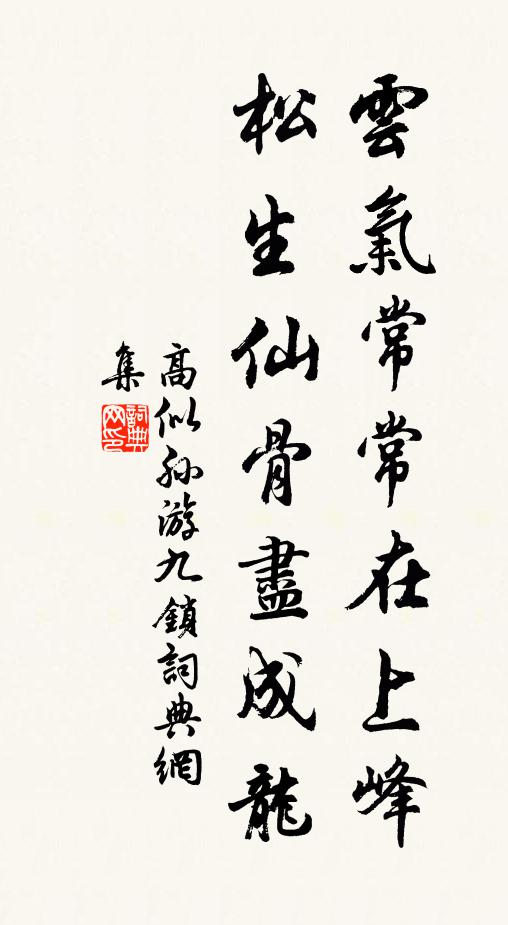 雲氣常常在上峰
松生仙骨盡成龍
高似孙游九鎖詞典網
集
詞典网印